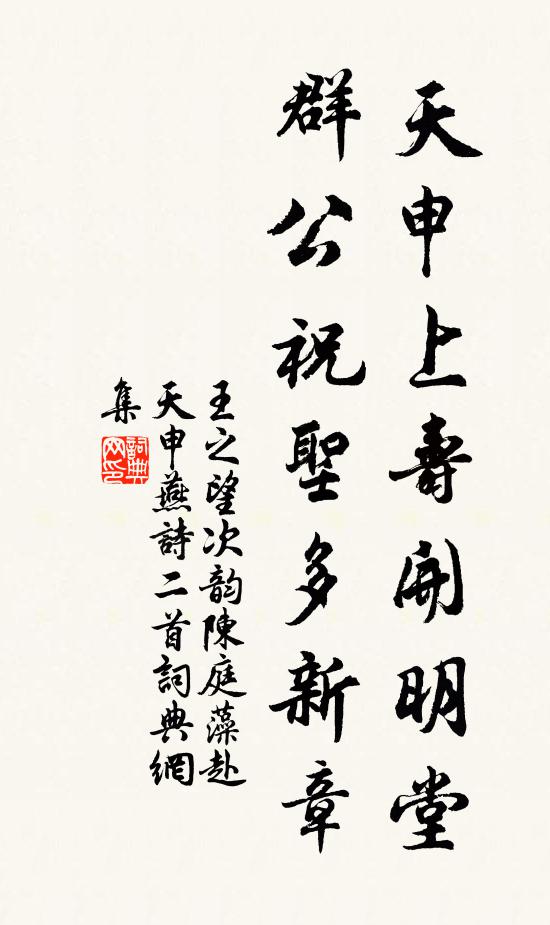 天申上壽開明堂
群公祝聖多新章
王之望次韵陳庭藻赴
天申燕詩二首詞典網
集
詞典
网印